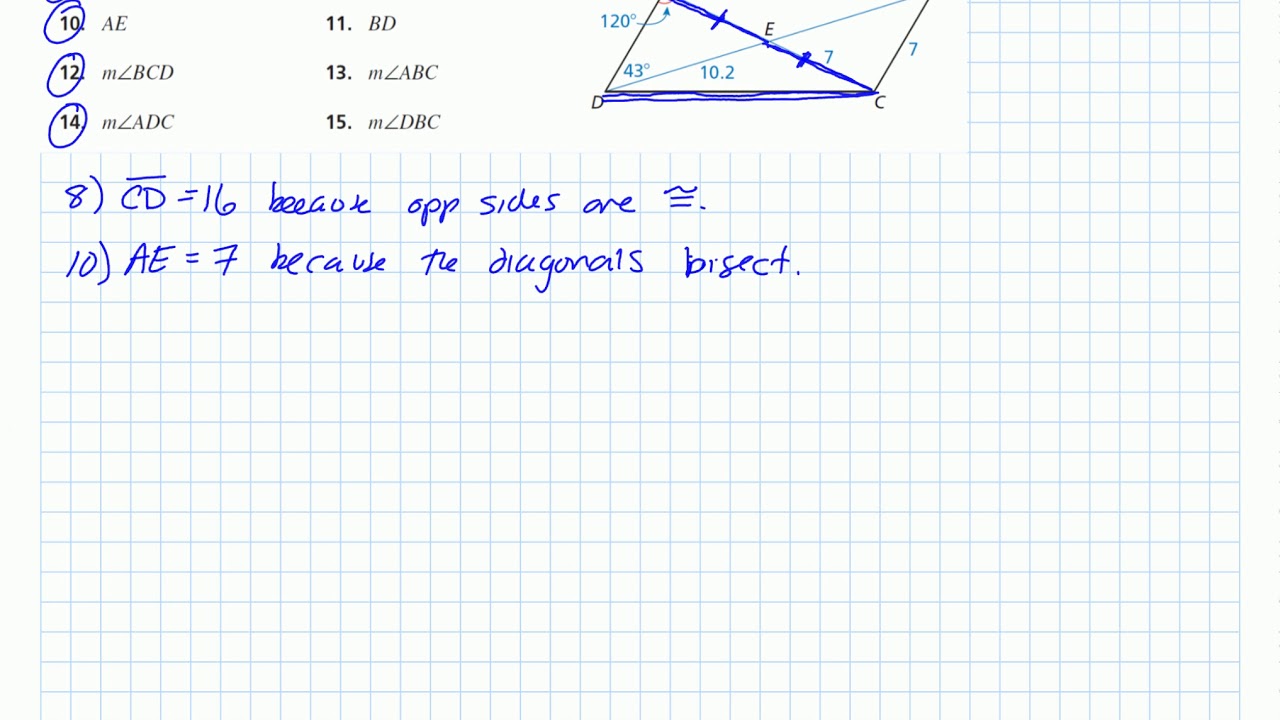 10. AE 11. BD
12. m∠BCD 13. m∠ABC
14. m∠ADC 15. m∠DBC
120°
E
7
7
43°
10.2
D
C
8) C̅D̅ = 16 because opp sides are ≅.
10) AE = 7 because the diagonals bisect.